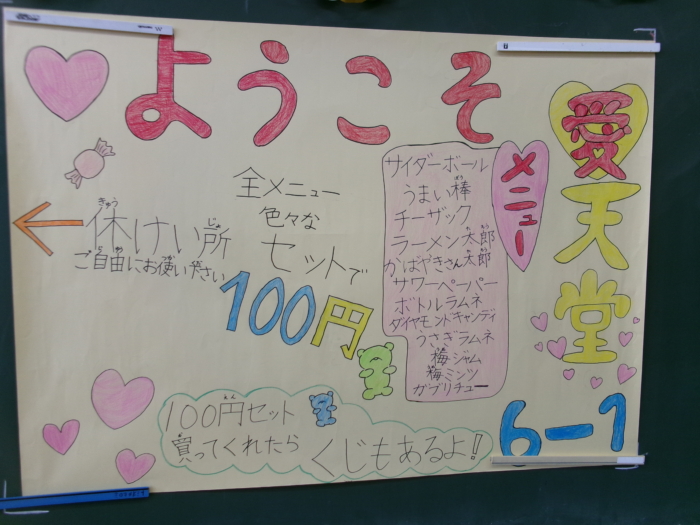 ようこそ
愛天堂
メニュー
サイダーボール
うまい棒
チーザック
ラーメン太郎
かばやきさん太郎
サワーペーパー
ボトルラムネ
ダイヤモンドキャンディ
うさぎラムネ
梅ジャム
梅ミンツ
ガブリチュー
全メニュー
色々な
セットで
100円
休けい所
ご自由にお使い下さい
100円セット
買ってくれたら
くじもあるよ!!
6-1